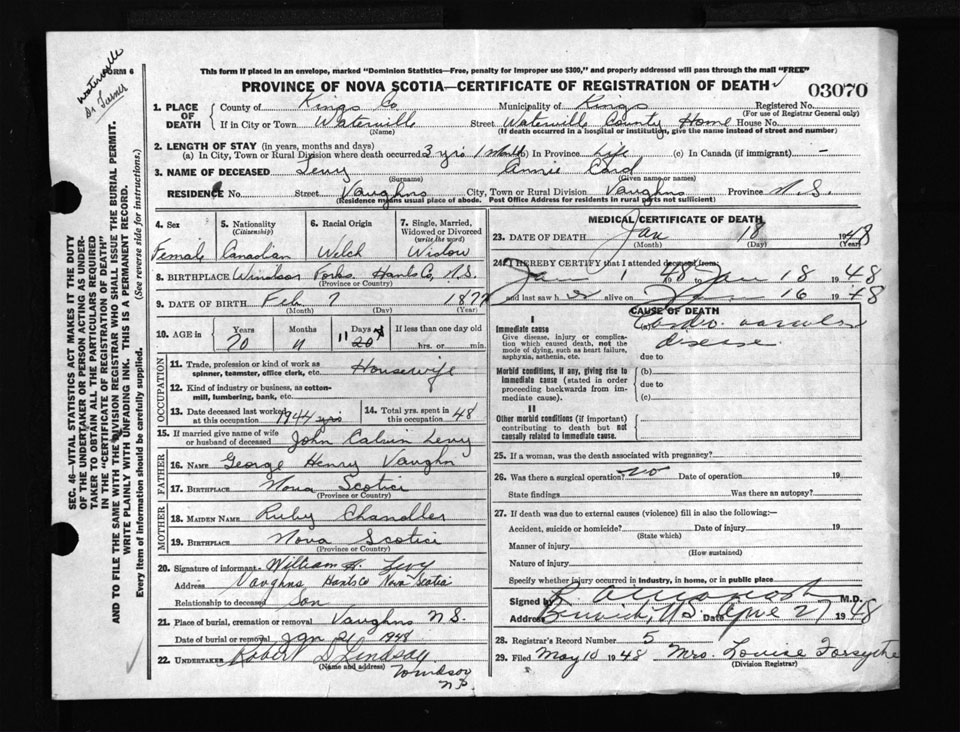 Waterville
Dr Farner
FORM 6
This form if placed in an envelope, marked "Dominion Statistics—Free, penalty for improper use $300," and properly addressed will pass through the mail "FREE"
PROVINCE OF NOVA SCOTIA—CERTIFICATE OF REGISTRATION OF DEATH
03070
1. PLACE OF DEATH
County of Kings Co Municipality of Kings Registered No.
(For use of Registrar General only)
If in City or Town Waterville Street Waterville County Home House No.
(Name) (If death occurred in a hospital or institution, give the name instead of street and number)
2. LENGTH OF STAY (in years, months and days)
(a) In City, Town or Rural Division where death occurred 3 yrs 1 Month (b) In Province Life (c) In Canada (if immigrant) —
3. NAME OF DECEASED Levy Annie Caird
(Surname) (Given name or names)
RESIDENCE No. Street Vaughns City, Town or Rural Division Vaughns Province N.S.
(Residence means usual place of abode. Post Office Address for residents in rural parts not sufficient)
4. Sex
Female
5. Nationality
(Citizenship)
Canadian
6. Racial Origin
Welch
7. Single, Married, Widowed or Divorced
(write the word)
Widow
8. BIRTHPLACE Windsor Forks. Hants Co, N.S.
(Province or Country)
9. DATE OF BIRTH Feb 7 1877
(Month) (Day) (Year)
10. AGE in Years Months Days If less than one day old
70 11 11 hrs. or min.
OCCUPATION
11. Trade, profession or kind of work as spinner, teamster, office clerk, etc. Housewife
12. Kind of industry or business, as cotton-mill, lumbering, bank, etc.
13. Date deceased last worked at this occupation 1944 yrs
14. Total yrs. spent in this occupation 48
15. If married give name of wife or husband of deceased John Calvin Levy
FATHER
16. NAME George Henry Vaughn
17. BIRTHPLACE Nova Scotia
(Province or Country)
MOTHER
18. MAIDEN NAME Ruby Chandler
19. BIRTHPLACE Nova Scotia
(Province or Country)
20. Signature of informant William H. Levy
Address Vaughns Hants Co Nova Scotia
Relationship to deceased Son
21. Place of burial, cremation or removal Vaughns N.S.
Date of burial or removal Jan 21 1948
22. UNDERTAKER Robert D Lindsay
(Name and address)
Windsor
N.S.
MEDICAL CERTIFICATE OF DEATH
23. DATE OF DEATH Jan 18 1948
(Month) (Day) (Year)
24. I HEREBY CERTIFY that I attended deceased from:
Jan 1 1948 to Jan 18 1948
and last saw her alive on Jan 16 1948
CAUSE OF DEATH
I
Immediate cause
Give disease, injury or complication which caused death, not the mode of dying, such as heart failure, asphyxia, asthenia, etc.
(a) Cardio-vascular
disease.
due to
Morbid conditions, if any, giving rise to immediate cause (stated in order proceeding backwards from immediate cause).
(b)
due to
(c)
II
Other morbid conditions (if important) contributing to death but not causally related to immediate cause.
25. If a woman, was the death associated with pregnancy?
26. Was there a surgical operation? No Date of operation 19
State findings Was there an autopsy?
27. If death was due to external causes (violence) fill in also the following:—
Accident, suicide or homicide? Date of injury 19
(State which)
Manner of injury
(How sustained)
Nature of injury
Specify whether injury occurred in industry, in home, or in public place
Signed by M.D.
Address Berwick, N.S. Date April 27 1948
28. Registrar's Record Number 5
29. Filed May 10 1948 Mrs. Louise Forsythe
(Division Registrar)
SEC. 46—VITAL STATISTICS ACT MAKES IT THE DUTY
OF THE UNDERTAKER OR PERSON ACTING AS UNDER-
TAKER TO OBTAIN ALL THE PARTICULARS REQUIRED
IN THE "CERTIFICATE OF REGISTRATION OF DEATH"
AND TO FILE THE SAME WITH THE DIVISION REGISTRAR WHO SHALL ISSUE THE BURIAL PERMIT.
WRITE PLAINLY WITH UNFADING INK. THIS IS A PERMANENT RECORD.
Every item of information should be carefully supplied. (See reverse side for instructions.)